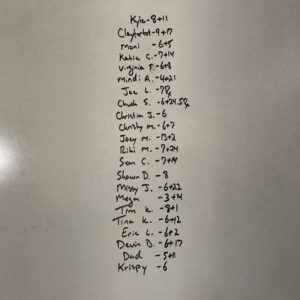 Kyle - 8+11
Claytortot - 9+17
Mani - 6+5
Kahle C. - 7+14
Virginia F. - 6+8
Mindi A. - 4+21
Joe L. - 7
Chuck S. - 6+24.5
Christian J. - 6
Christy M. - 6+7
Joey M. - 13+2
Riki M. - 7+24
Sean C. - 7+14
Shawn D. - 8
Missy J. - 6+22
Megan - 3+14
Tim K. - 8+1
Tina K. - 6+12
Eric L. - 6+2
Devin D. - 6+17
Dad - 5+11
Krispy - 6